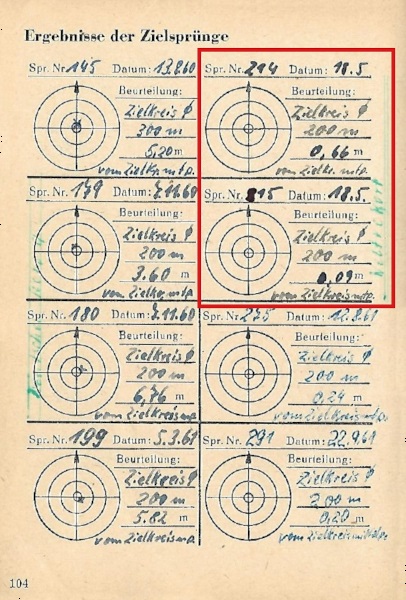 Ergebnisse der Zielsprünge
Spr. Nr. 145 Datum: 13.8.60
Beurteilung:
Zielkreis φ
300 m
5,20 m
vom Zielkr. mtp.
Spr. Nr. 214 Datum: 18.5
Beurteilung:
Zielkreis φ
200 m
0,66 m
vom Zielkr. mtp.
Spr. Nr. 179 Datum: 7.11.60
Beurteilung:
Zielkreis φ
200 m
3.60 m
vom Zielkr. mtp
Spr. Nr. 215 Datum: 18.5.
Beurteilung:
Zielkreis φ
200 m
0,09 m
vom Zielkreismtp.
Spr. Nr. 180 Datum: 7.11.60
Beurteilung:
Zielkreis φ
200 m
6,76 m
vom Zielkreismp.
Spr. Nr. 275 Datum: 12.8.61
Beurteilung:
Zielkreis φ
200 m
0,24 m
vom Zielkreismtp.
Spr. Nr. 199 Datum: 5.3.61
Beurteilung:
Zielkreis φ
200 m
5.82 m
vom Zielkreismp.
Spr. Nr. 291 Datum: 22.9.61
Beurteilung:
Zielkreis φ
200 m
0,20 m
104